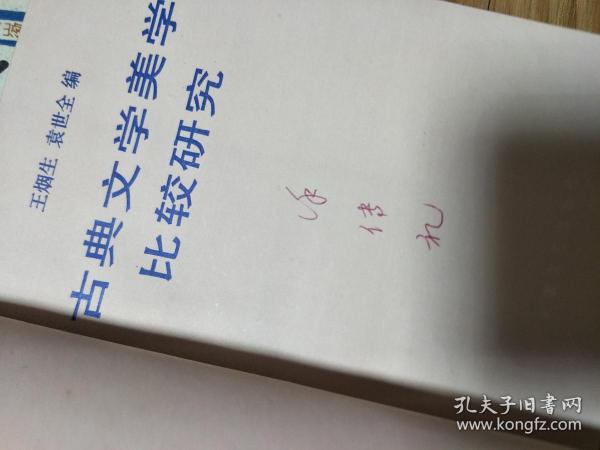 王烟生 袁世全 编
古典文学美学
比较研究
传礼
孔夫子旧书网
www.kongfz.com